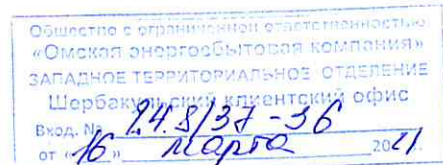 Общество с ограниченной ответственностью
«Омская энергосбытовая компания»
ЗАПАДНОЕ ТЕРРИТОРИАЛЬНОЕ ОТДЕЛЕНИЕ
Шербакульский клиентский офис
Вход. № 24.8/37-36
от «16» марта 2021.